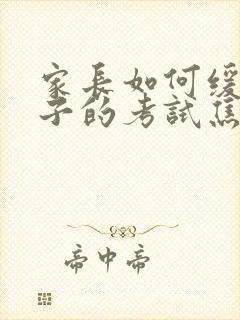 家長如何缓
子的考試焦
帝中帝